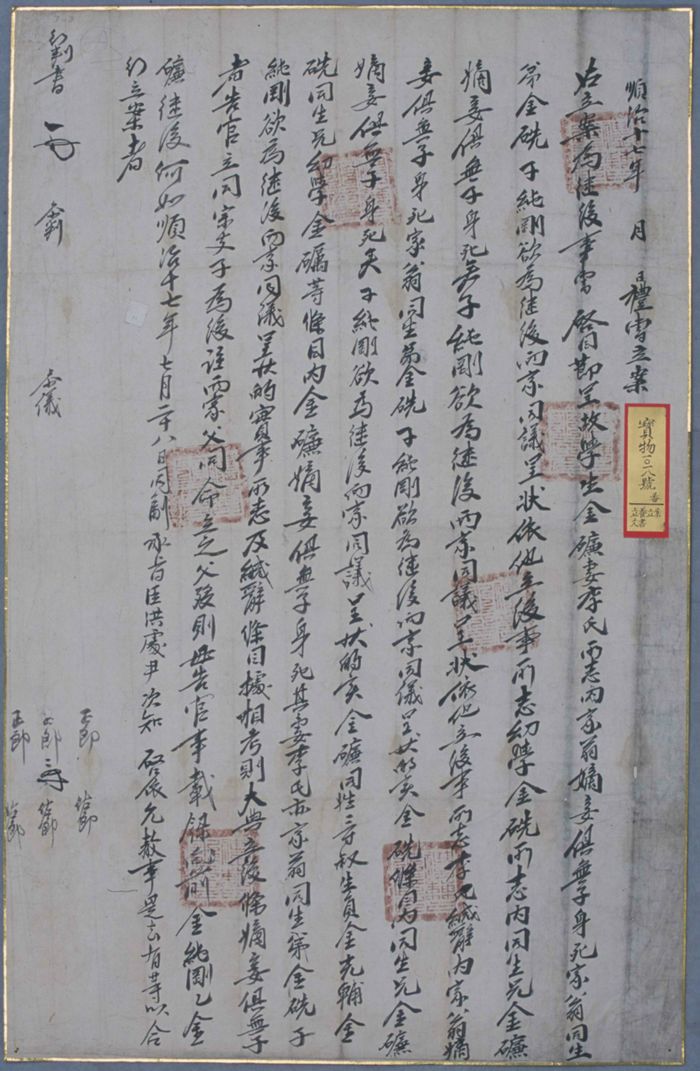 順治十七年 月 日禮曹立案
右立案爲繼後事曺 啓目節呈故學生金礦妻李氏所志內家翁嫡妾俱無子身死家翁同生
弟金硄子純剛欲爲繼後兩家同議呈狀依他立後事所志幼學金硄所志內同生兄金礦
嫡妾俱無子身死矣子純剛欲爲繼後兩家同議呈狀依他立後事所志李氏緘辭內家翁嫡
妾俱無子身死家翁同生弟金硄子純剛欲爲繼後兩家同議呈狀的實金硄條目內同生兄金礦
嫡妾俱無子身死矣子純剛欲爲繼後兩家同議呈狀的實金礦同姓三寸叔生員金光輔金
硄同生兄幼學金礪等條目內金礦嫡妾俱無子身死其妻李氏亦家翁同生弟金硄子
純剛欲爲繼後兩家同議呈狀的實事所志及緘辭條目據相考則大典立後條嫡妾俱無子
者告官立同宗支子爲後註兩家父同命立之父歿則母告官事載錄爲前金純剛乙金
礦繼後何如順治十七年七月二十八日同副承旨臣洪處尹次知 啓依允敎事是去有等以合
行立案者
行判書 參判 參議
正郎 正郎 正郎
佐郎 佐郎 佐郎
寶物一〇二八號